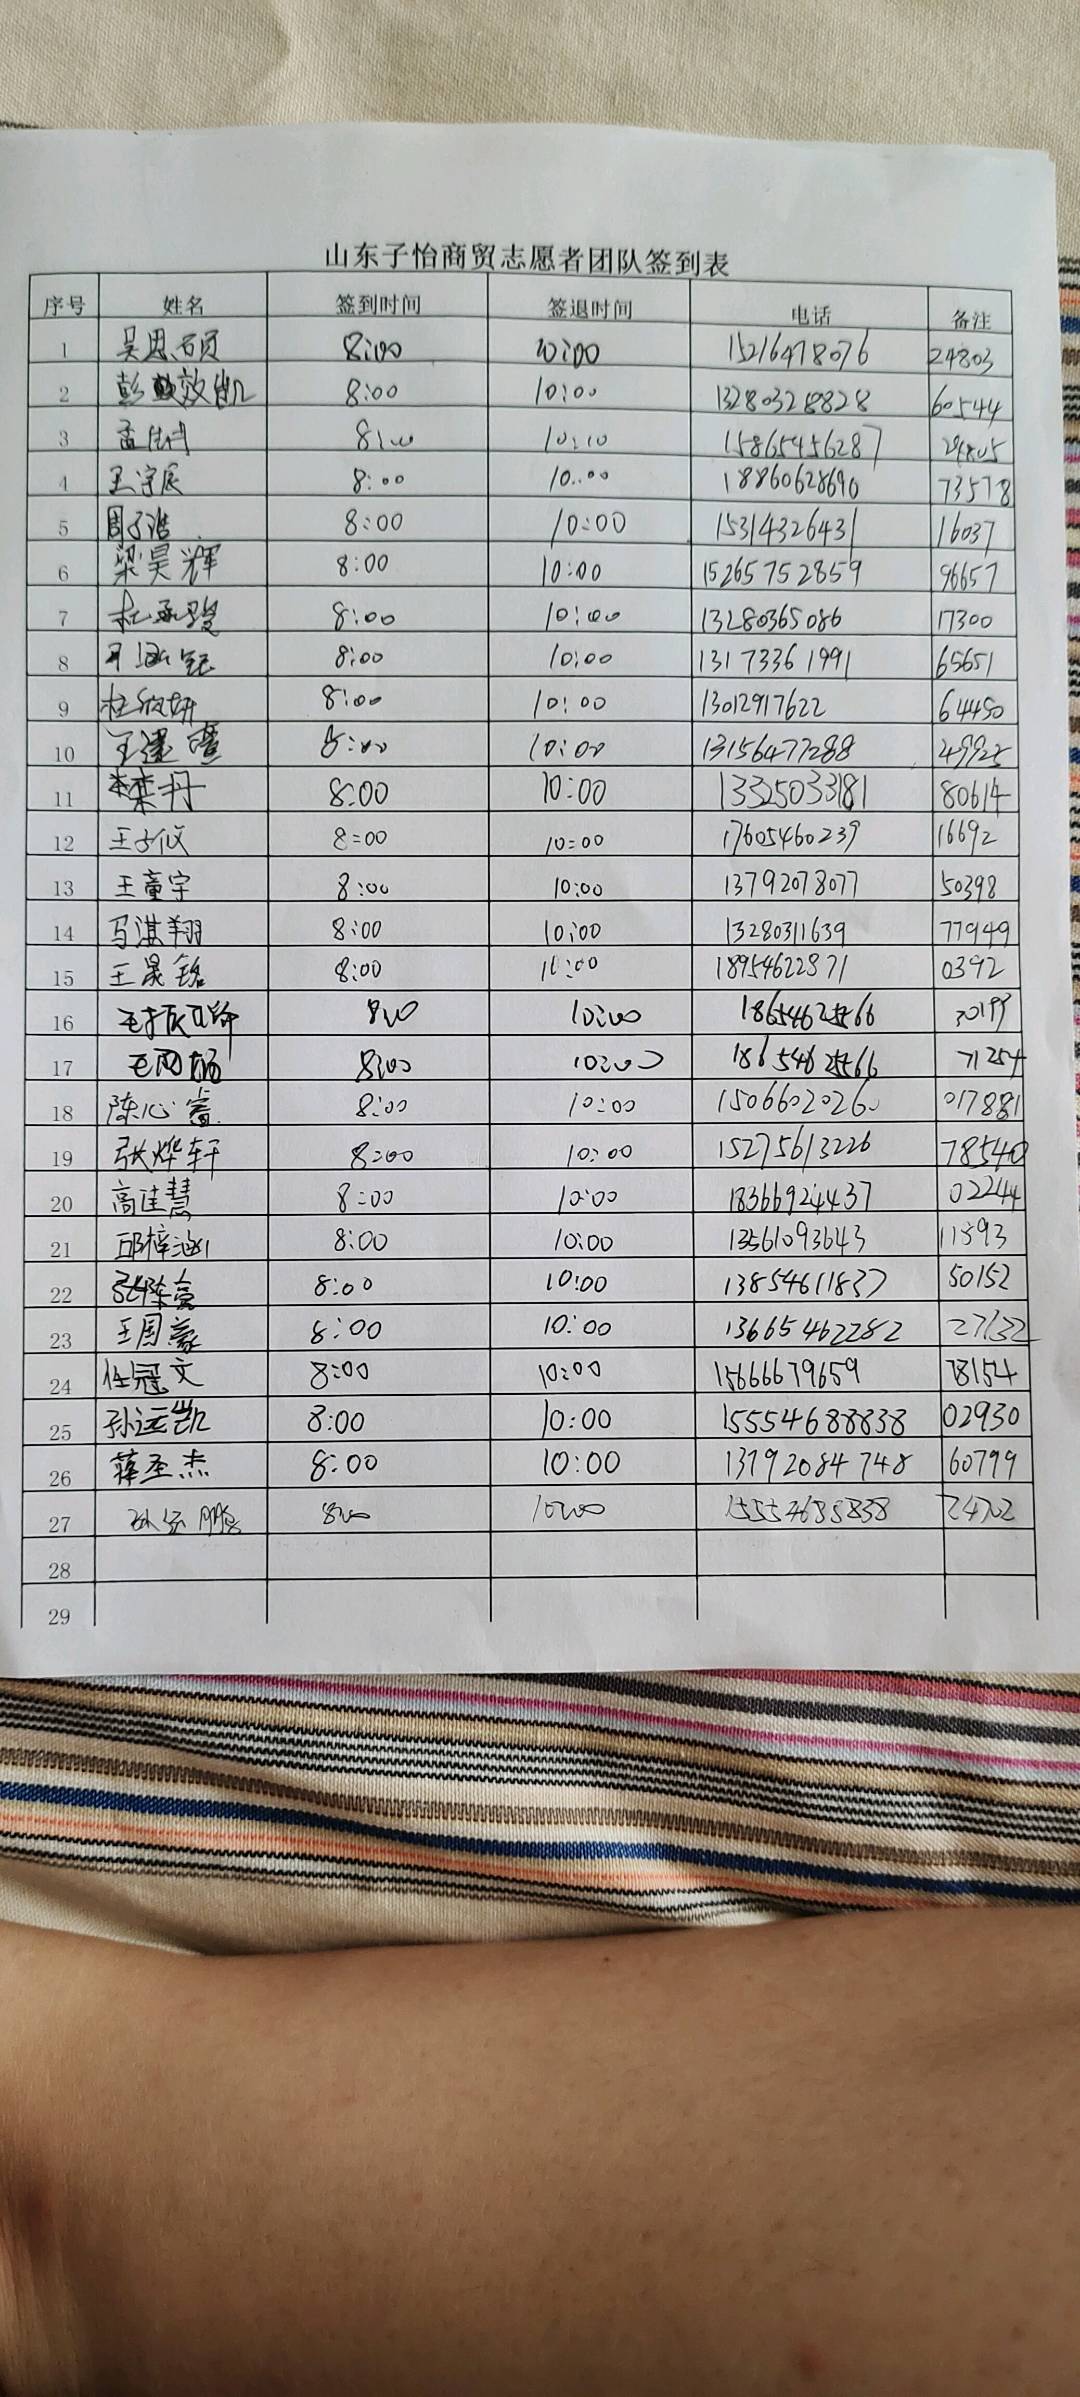 山东子怡商贸志愿者团队签到表
序号 姓名 签到时间 签退时间 电话 备注
1 吴恩硕 8:00 10:00 15216478076 24803
2 彭效凯 8:00 10:00 13280328828 60544
3 孟 8:00 10:10 15865456287 24805
4 王宇辰 8:00 10:00 18860628690 73578
5 周子浩 8:00 10:00 15314326431 16037
6 梁昊辉 8:00 10:00 15265752859 96657
7 杜承骏 8:00 10:00 13280365086 17300
8 8:00 10:00 13173361991 65651
9 杜欣妍 8:00 10:00 13012917622 64450
10 王 8:00 10:00 13156477288 49925
11 栾丹 8:00 10:00 13325033181 80614
12 王子仪 8:00 10:00 17605460239 16692
13 王童宇 8:00 10:00 13792078077 50398
14 马淇翔 8:00 10:00 13280311639 77949
15 王晟铭 8:00 10:00 18954622871 0392
16 8:00 10:00 30199
17 8:00 10:00 71254
18 陈心睿 8:00 10:00 15066020260 017881
19 张烨轩 8:00 10:00 15275613226 78540
20 高佳慧 8:00 10:00 18366924437 02244
21 邱梓涵 8:00 10:00 13561093643 11593
22 8:00 10:00 13854611837 50152
23 王国豪 8:00 10:00 13665462282 27632
24 任冠文 8:00 10:00 15666679659 78154
25 孙运凯 8:00 10:00 15554688838 02930
26 蒋圣杰 8:00 10:00 13792084748 60799
27 8:00 10:00 15554688838 24702
28
29